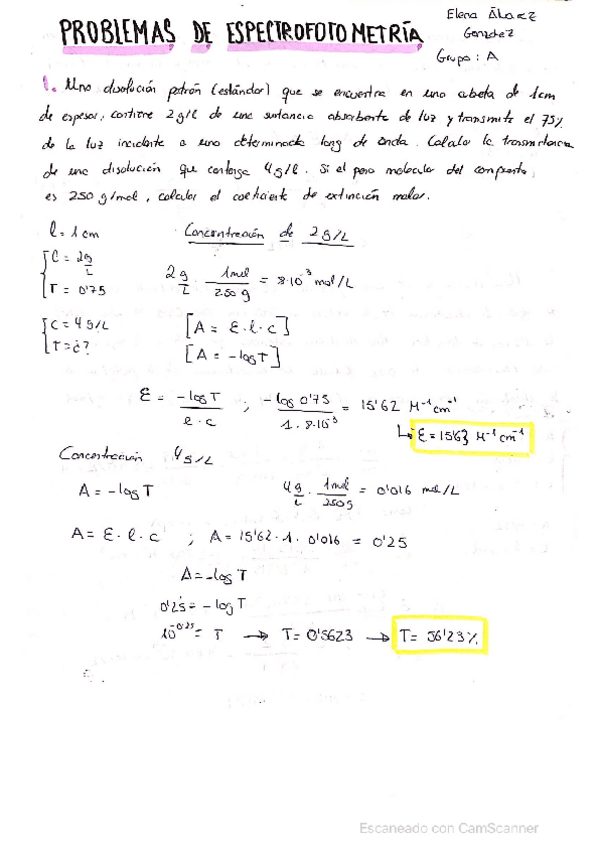 PROBLEMAS DE ESPECTROFOTOMETRÍA
Elena
Grupo: A
1. Una disolución patrón (estándar) que se encuentra en una cubeta de 1cm
de espesor, contiene 2 g/l de una sustancia absorbente de luz y transmite el 75%
de la luz incidente a una determinada long de onda. Calcular la transmitancia
de una disolución que contenga 4g/l. Si el peso molecular del compuesto
es 250 g/mol, calcular el coeficiente de extinción molar.
l = 1 cm
Concentración de 2 g/L
C = 2g/L
T = 0'75
2 g/L · 1mol/250 g = 8·10⁻³ mol/L
C = 4 g/L
T = ¿?
[A = ε·l·c]
[A = -log T]
ε = -log T / l·c ; -log 0'75 / 1·8·10⁻³ = 15'62 M⁻¹cm⁻¹
↳ ε = 15'63 M⁻¹cm⁻¹
Concentración 4g/L
A = -log T
4g/L · 1mol/250g = 0'016 mol/L
A = ε·l·c ; A = 15'62·1·0'016 = 0'25
A = -log T
0'25 = -log T
10⁻⁰'²⁵ = T → T = 0'5623 → T = 56'23%
Escaneado con CamScanner